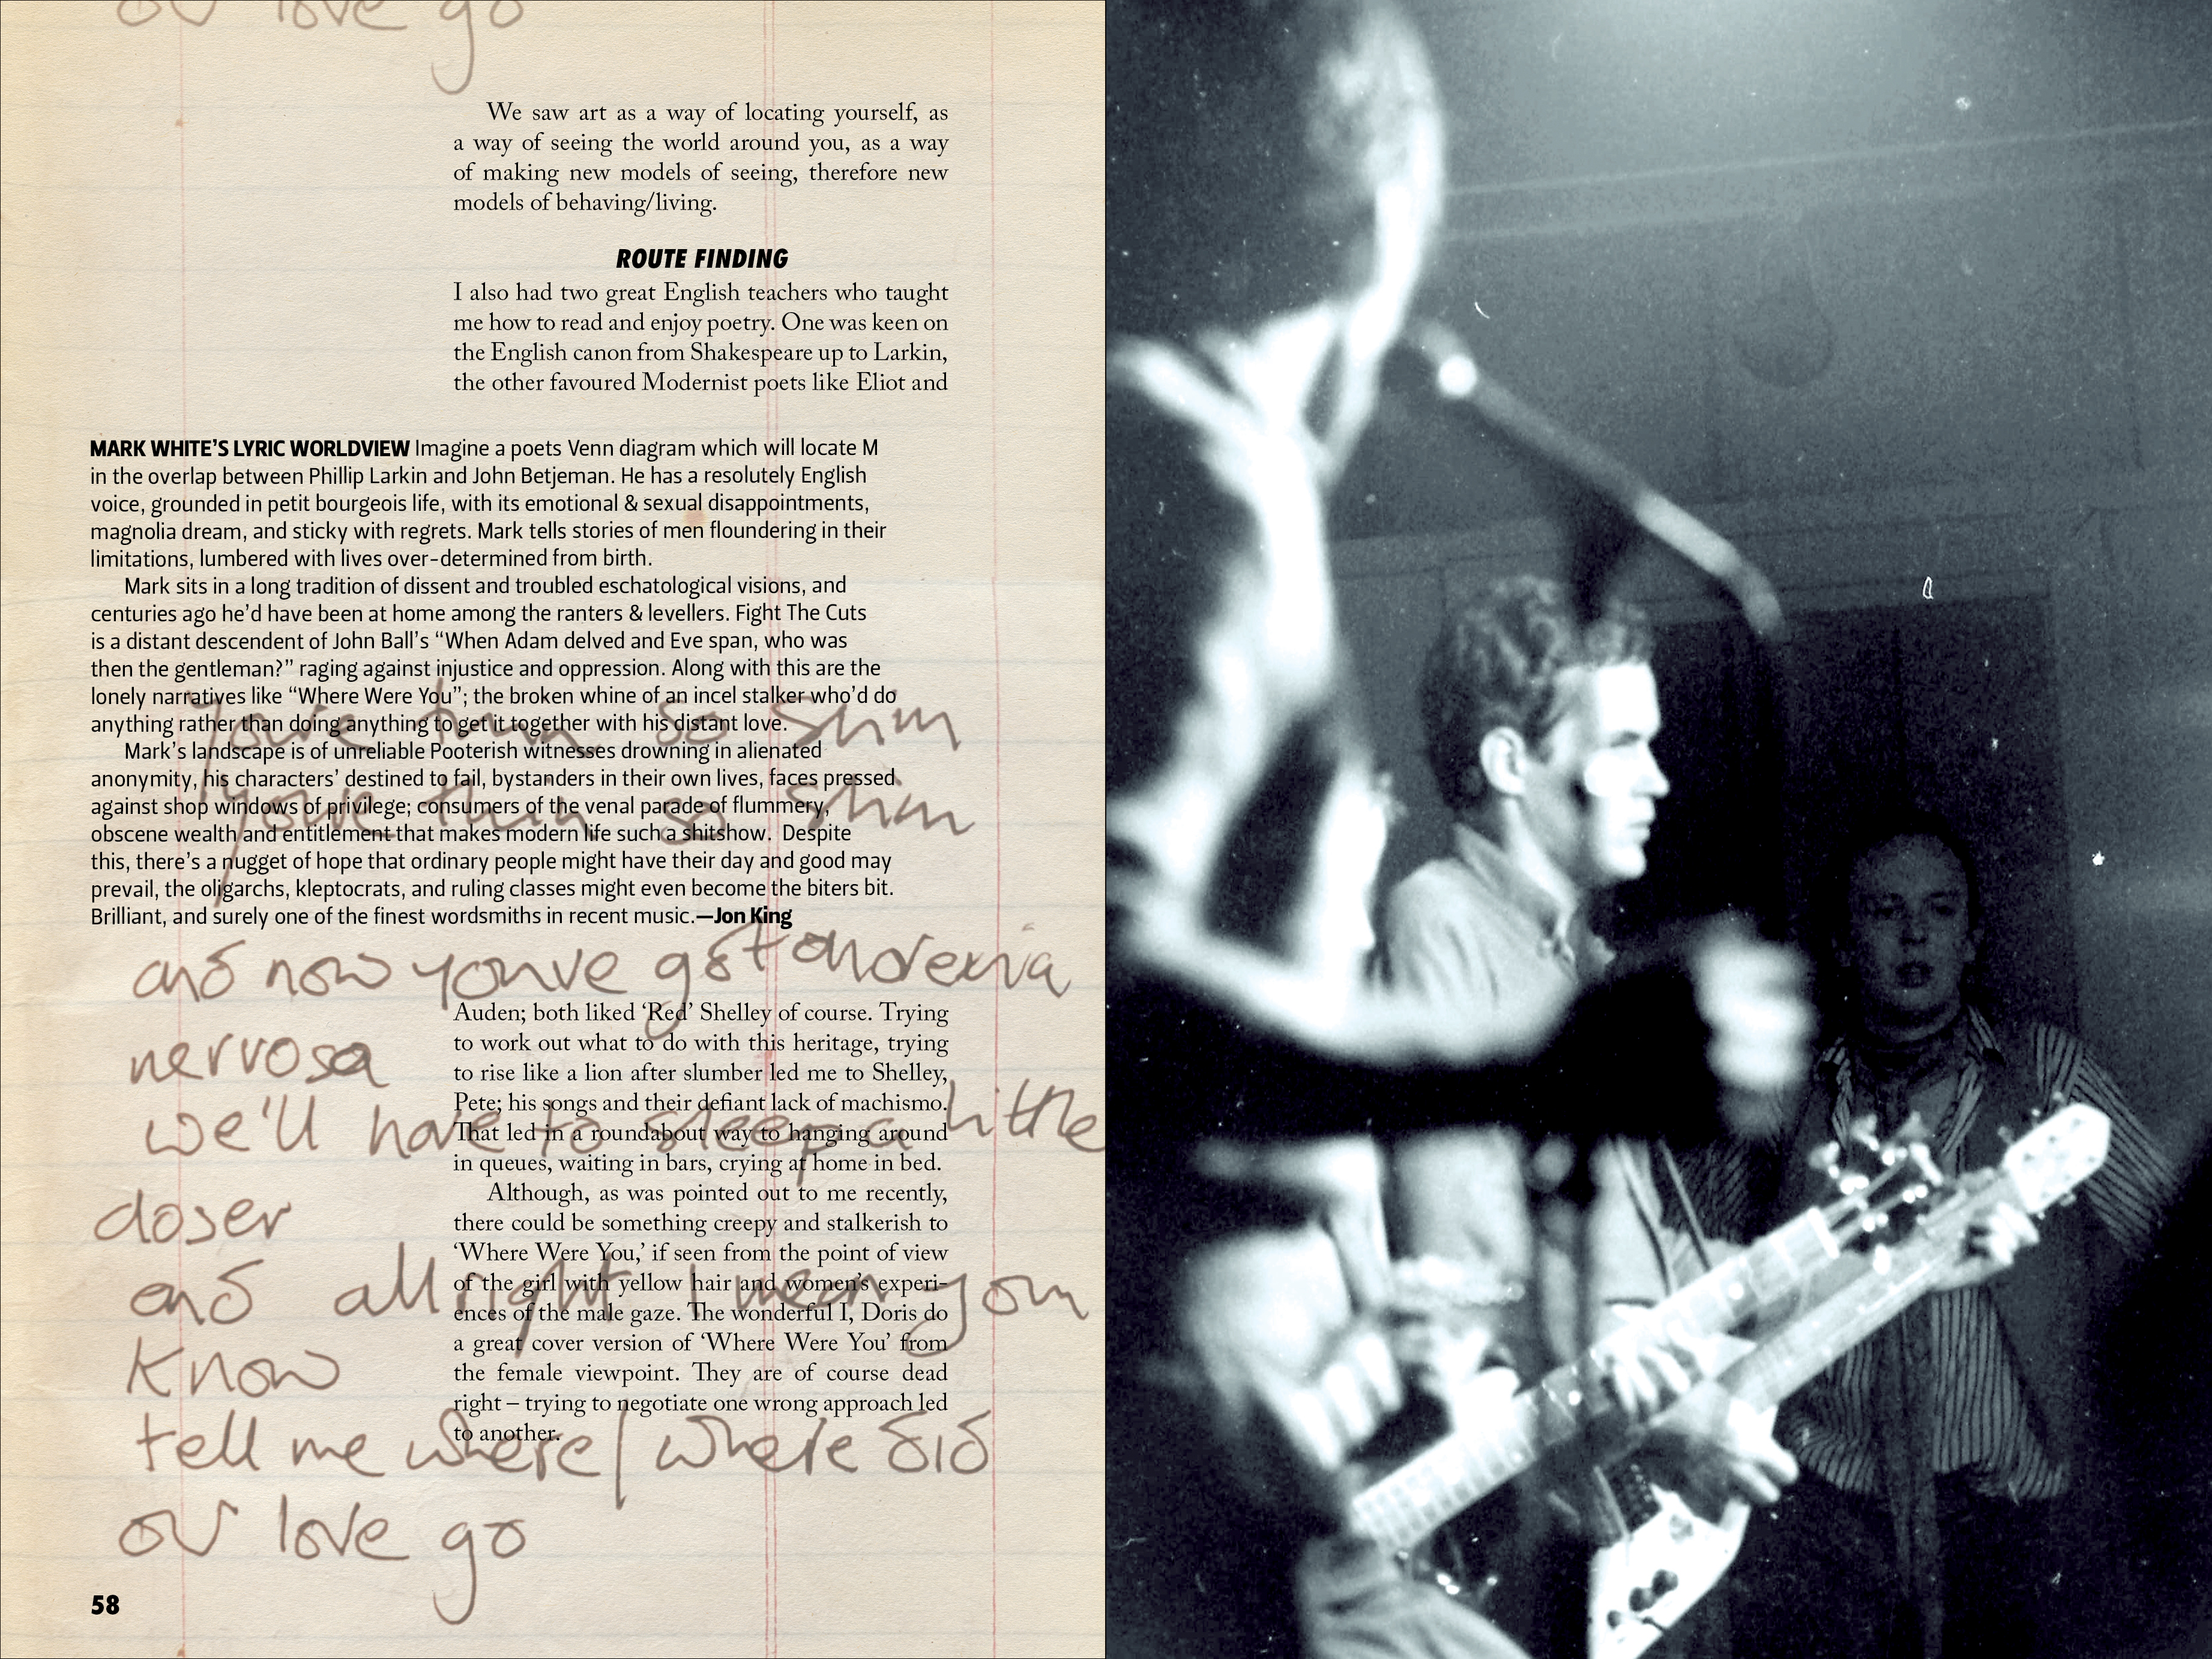 ov love go
We saw art as a way of locating yourself, as
a way of seeing the world around you, as a way
of making new models of seeing, therefore new
models of behaving/living.
ROUTE FINDING
I also had two great English teachers who taught
me how to read and enjoy poetry. One was keen on
the English canon from Shakespeare up to Larkin,
the other favoured Modernist poets like Eliot and
MARK WHITE'S LYRIC WORLDVIEW Imagine a poets Venn diagram which will locate M
in the overlap between Phillip Larkin and John Betjeman. He has a resolutely English
voice, grounded in petit bourgeois life, with its emotional & sexual disappointments,
magnolia dream, and sticky with regrets. Mark tells stories of men floundering in their
limitations, lumbered with lives over-determined from birth.
Mark sits in a long tradition of dissent and troubled eschatological visions, and
centuries ago he'd have been at home among the ranters & levellers. Fight The Cuts
is a distant descendent of John Ball's “When Adam delved and Eve span, who was
then the gentleman?” raging against injustice and oppression. Along with this are the
lonely narratives like “Where Were You”; the broken whine of an incel stalker who'd do
anything rather than doing anything to get it together with his distant love.
Mark's landscape is of unreliable Pooterish witnesses drowning in alienated
anonymity, his characters' destined to fail, bystanders in their own lives, faces pressed
against shop windows of privilege; consumers of the venal parade of flummery,
obscene wealth and entitlement that makes modern life such a shitshow. Despite
this, there's a nugget of hope that ordinary people might have their day and good may
prevail, the oligarchs, kleptocrats, and ruling classes might even become the biters bit.
Brilliant, and surely one of the finest wordsmiths in recent music.—Jon King
Auden; both liked ‘Red’ Shelley of course. Trying
to work out what to do with this heritage, trying
to rise like a lion after slumber led me to Shelley,
Pete; his songs and their defiant lack of machismo.
That led in a roundabout way to hanging around
in queues, waiting in bars, crying at home in bed.
Although, as was pointed out to me recently,
there could be something creepy and stalkerish to
‘Where Were You,’ if seen from the point of view
of the girl with yellow hair and women's experi-
ences of the male gaze. The wonderful I, Doris do
a great cover version of ‘Where Were You’ from
the female viewpoint. They are of course dead
right – trying to negotiate one wrong approach led
to another.
youre thin so slim
youre thin so slim
and now youve got anorexia
nervosa
we'll have to sleep a little
closer
and all right I mean you
know
tell me where / where did
ov love go
58